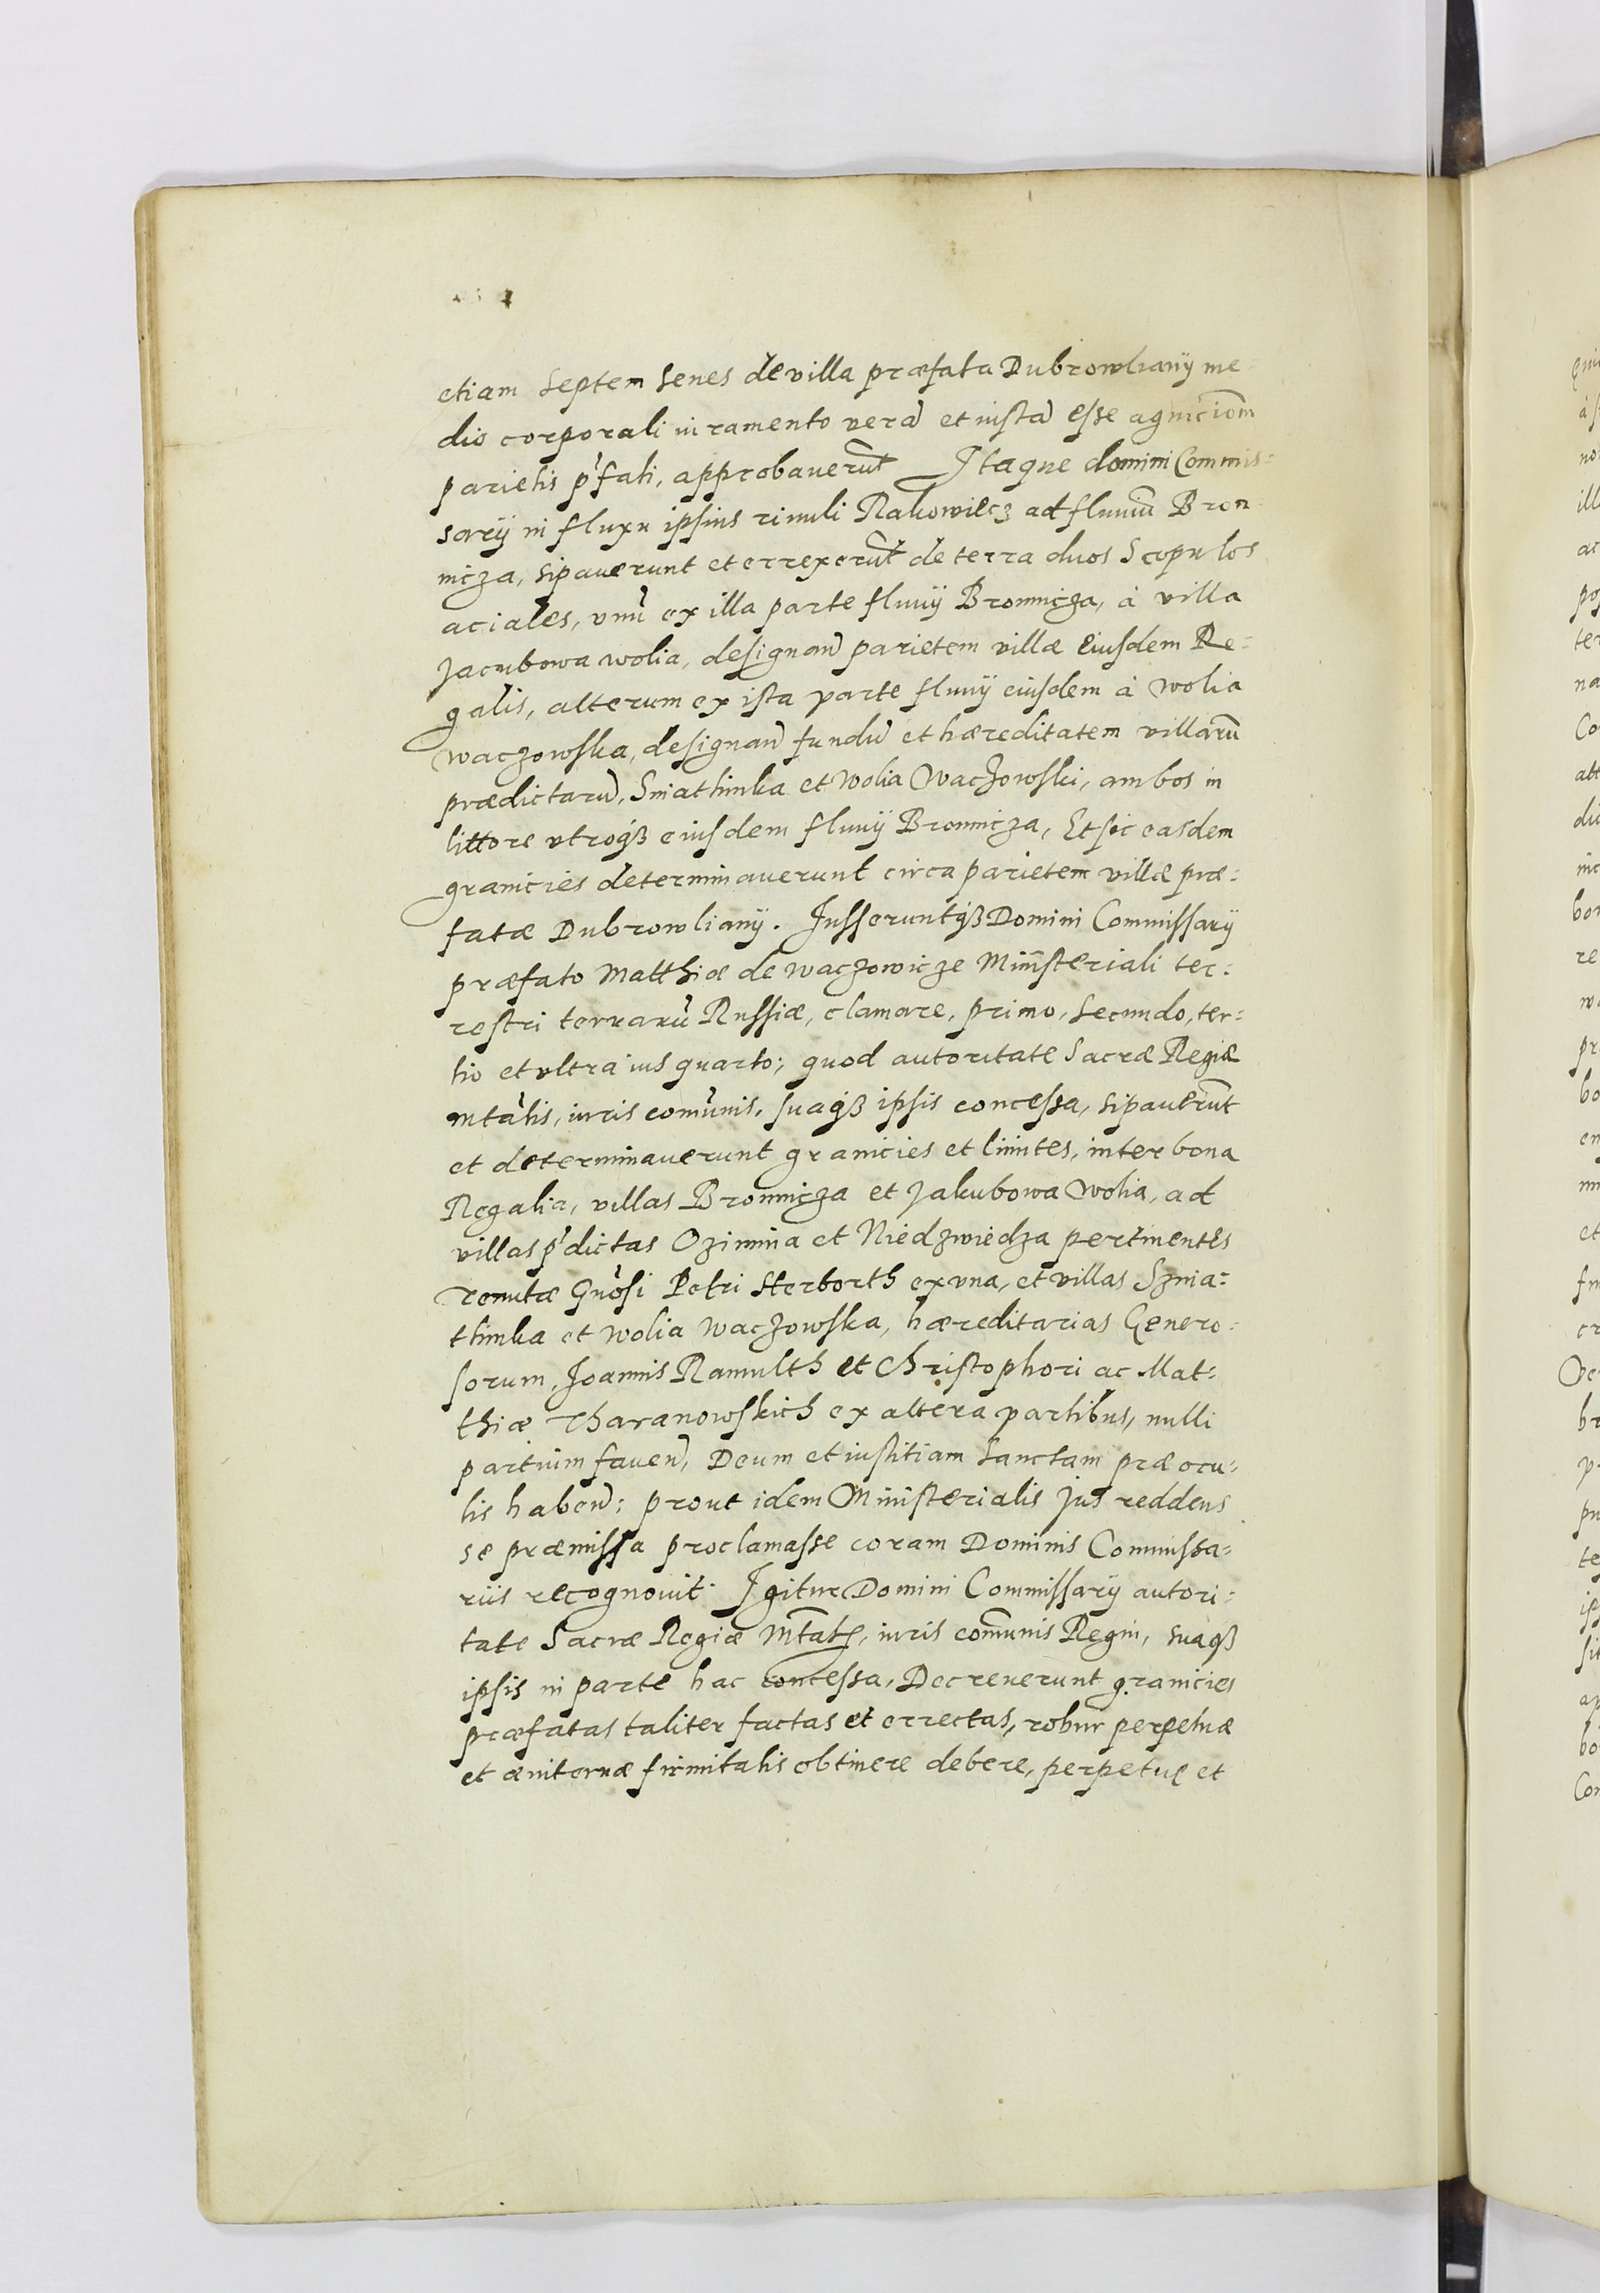 etiam septem senes de villa præfata Dubrowlianÿ me-
dio corporali iuramento verā et iustā esse agnicioēm
parietis p̄fati, approbauerūt Itaque domini Commis=
sarÿ in fluxu ipsius riuuli Rakowiecz ad fluuiū Bron
nicza, sipauerunt et errexerūt de terra duos Scopulos
aciales, vnū ex illa parte fluuÿ Bronnicza, à villa
Jacubowa wolia, designan̄ parietem villæ eiusdem Re=
galis, alterum ex ista parte fluuÿ eiusdem à wolia
waczowska, designan̄ fundū et hæreditatem villarū
prædictarū, Sniathinka et wolia waczowski, ambos in
littore vtroqꝫ eiusdem fluuÿ Bronnicza, Et sic easdem
granicies determinauerunt circa parietem villæ præ=
fatæ Dubrowlianÿ. Iusseruntqꝫ Domini Commissarÿ
præfato Matthiæ de waczowicze Ministeriali ter=
restri terrarū Russiæ, clamare, primo, secundo, ter=
tio et vltra ius quarto; quod autoritate Sacræ Regiæ
mtātis, iuris comūnis, suaqꝫ ipsis concessa, sipauerūt
et determinauerunt granicies et limites, inter bona
Regalia, villas Bronnicza et Jakubowa wolia, ad
villas p̄dictas Ozimina et Niedzwiedza pertinentes
Tenutæ Gnōsi Petri Herborth ex vna, et villas Sznia=
thinka et wolia waczowska, hæreditarias Genero=
sorum, Joannis Ramulth et Christophori ac Mat=
thiæ Tharanowskich ex altera partibus, nulli
partium fauen̄, Deum et iustitiam sanctam præ ocu=
lis haben̄; prout idem Ministerialis jus reddens
se præmissa proclamasse coram Dominis Commissa=
riis recognouit. Igitur Domini Commissarÿ autori=
tate Sacræ Regiæ Mtāt, iuris comūnis Regni, suaqꝫ
ipsis in parte hac concessa, Decreuerunt granicies
præfatas taliter factas et errectas, robur perpetuæ
et æuiternæ firmitatis obtinere debere, perpetuę et